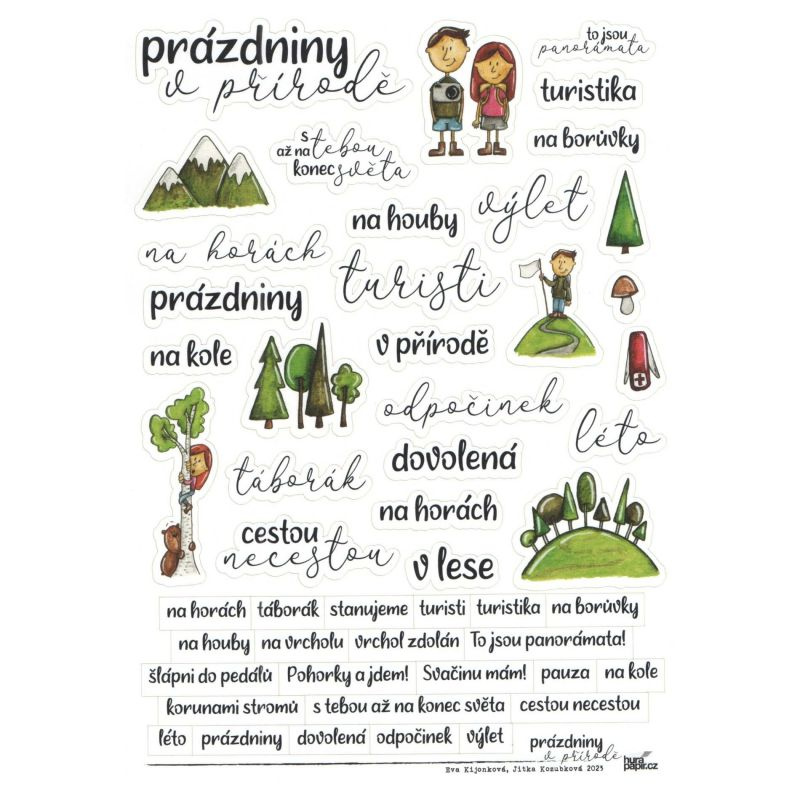 prázdniny
v přírodě
to jsou
panorámata
turistika
na borůvky
s
až na tebou
konec světa
výlet
na houby
na horách
turisti
prázdniny
v přírodě
na kole
odpočinek
léto
dovolená
táborák
na horách
cestou
necestou
v lese
na horách táborák stanujeme turisti turistika na borůvky
na houby na vrcholu vrchol zdolán To jsou panorámata!
šlápni do pedálů Pohorky a jdem! Svačinu mám! pauza na kole
korunami stromů s tebou až na konec světa cestou necestou
léto prázdniny dovolená odpočinek výlet
prázdniny
v přírodě
hurá
papír.cz
Eva Kijonková, Jitka Kozubková 2023